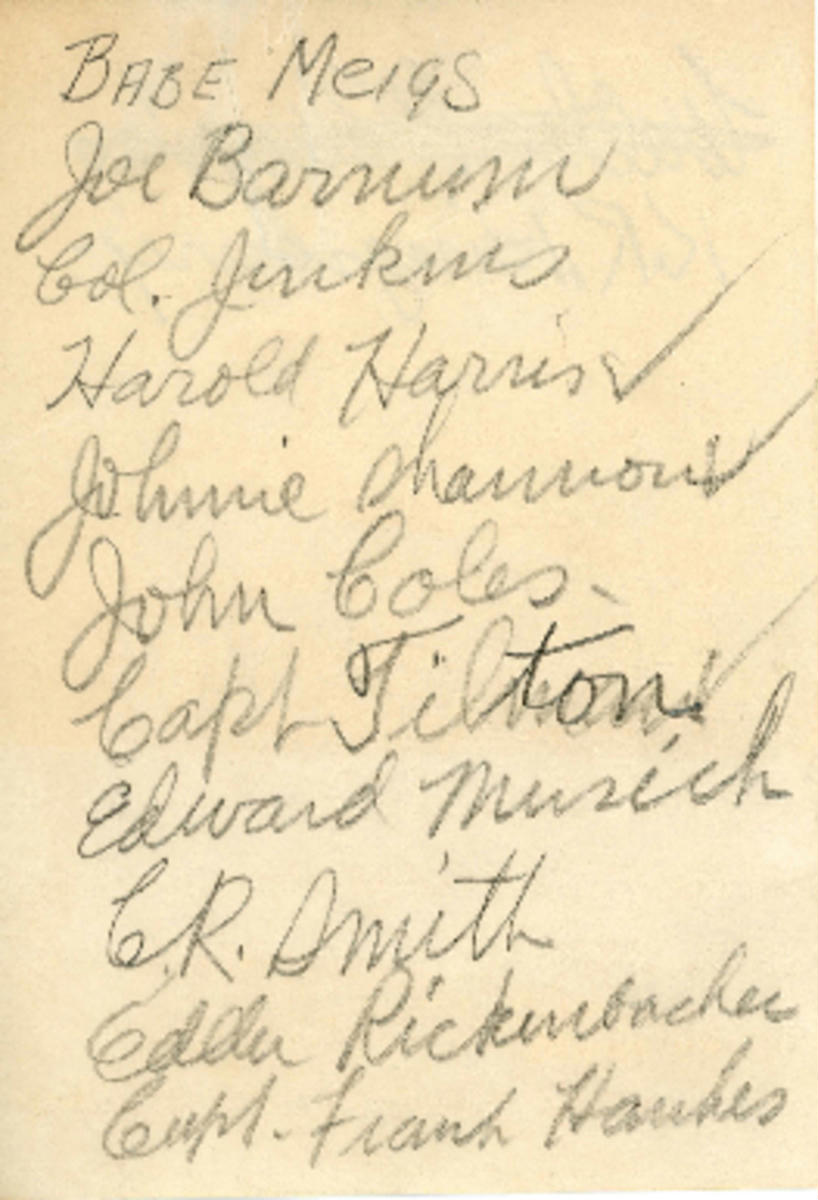 BABE MeigS
Joe Barnum
Col. Jenkins
Harold Harris ✓
Johnnie Shannon ✓
John Coles
Capt Tilton ✓
Edward Musick
C.R. Smith
Eddie Rickenbacker
Capt. Frank Hawkes